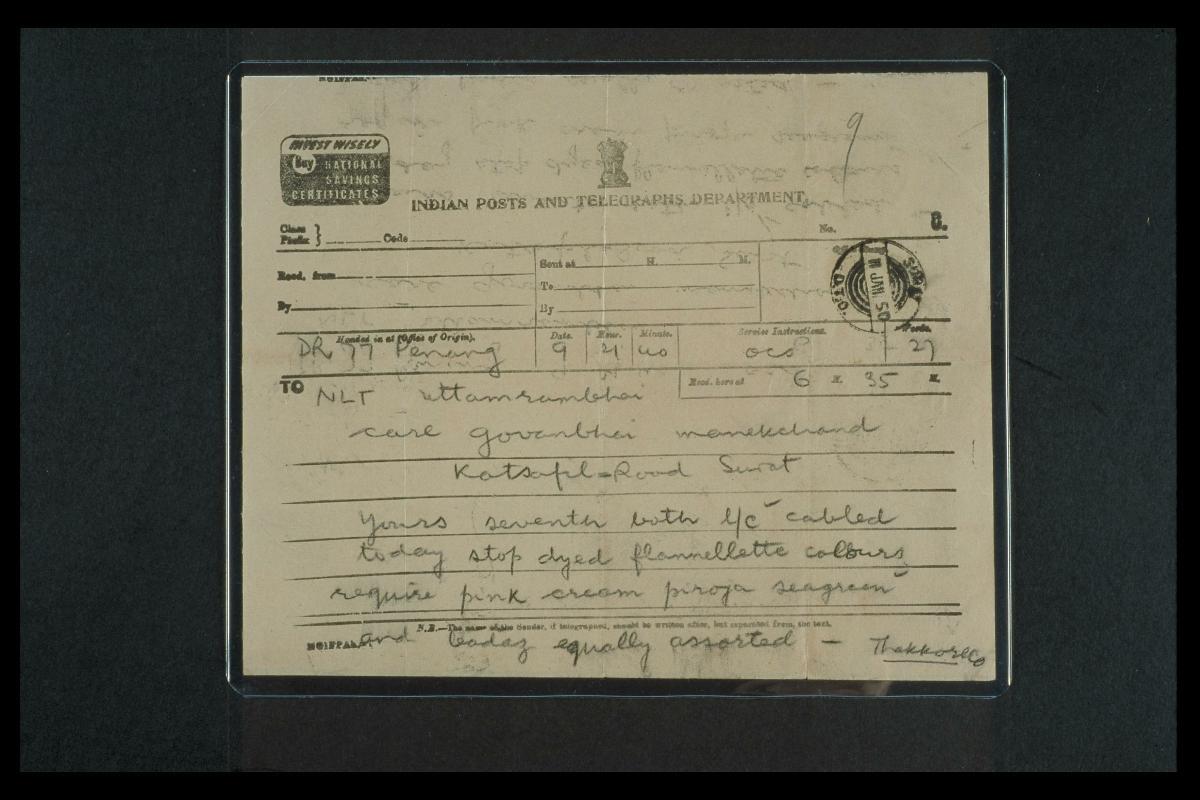 INVEST WISELY
Buy NATIONAL
SAVINGS
CERTIFICATES
9
INDIAN POSTS AND TELEGRAPHS DEPARTMENT
Class
Prefix } Code
No.
8.
Recd. from
Sent at H. M.
To
By
By
SURAT
JAN 50
D.T.O.
Handed in at (Office of Origin).
Date. Hour. Minute.
Service Instructions.
Words.
DR 77 Penang 9 21 40 27
TO
Recd. here at 6 H. 35 M.
NLT Uttamrambhai
care govanbhai manekchand
Road Surat
Yours seventh both l/c cabled
today stop dyed flannellette colours
require pink cream piroja seagreen
N.B.—The name of the Sender, if telegraphed, should be written after, but separated from, the text.
and equally assorted —